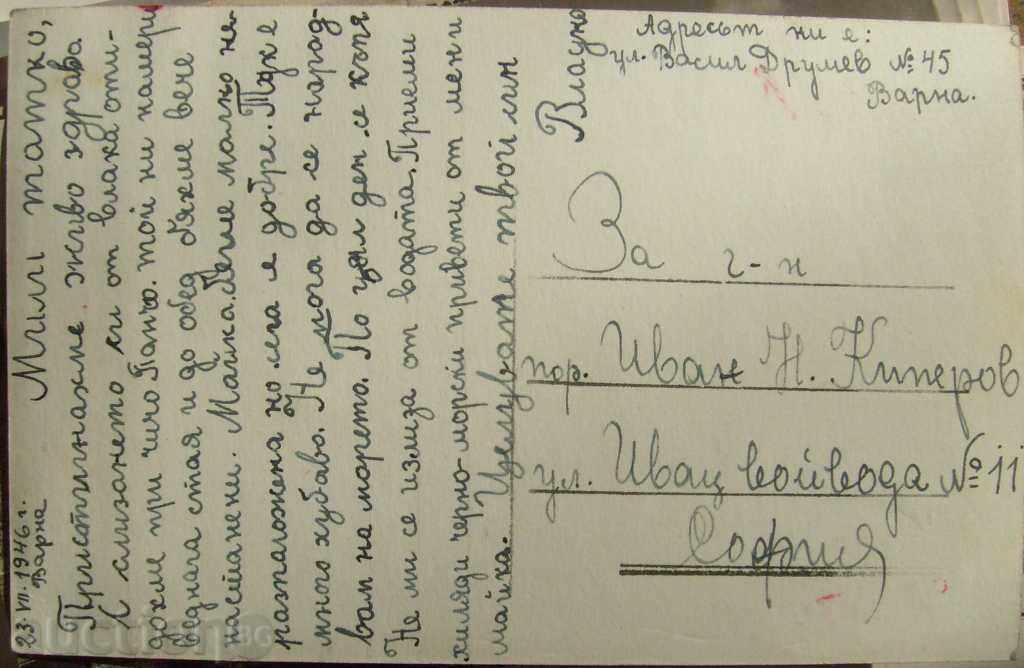 23.VII.1946 г.
Варна
Мили татко,
Пристигнахме живо здрава
С слизането си от влака оти-
дохме при чичо Панчо. той ни намери
веднага стая и до обед бяхме вече
настанени. Майка беше малко не
разположена но сега е добре. Тук е
много хубаво. Не мога да се нарад-
вам на морето. По цял ден се къпя
Не ми се излиза от водата. Приеми
хиляди черно-морски привети от мен и
майка. Целувам те твой син
Владко
Адресът ни е:
ул. Васил Друмев № 45
Варна.
За г-н
пор. Иван Н. Киперов
ул. Ивац войвода № 11
София